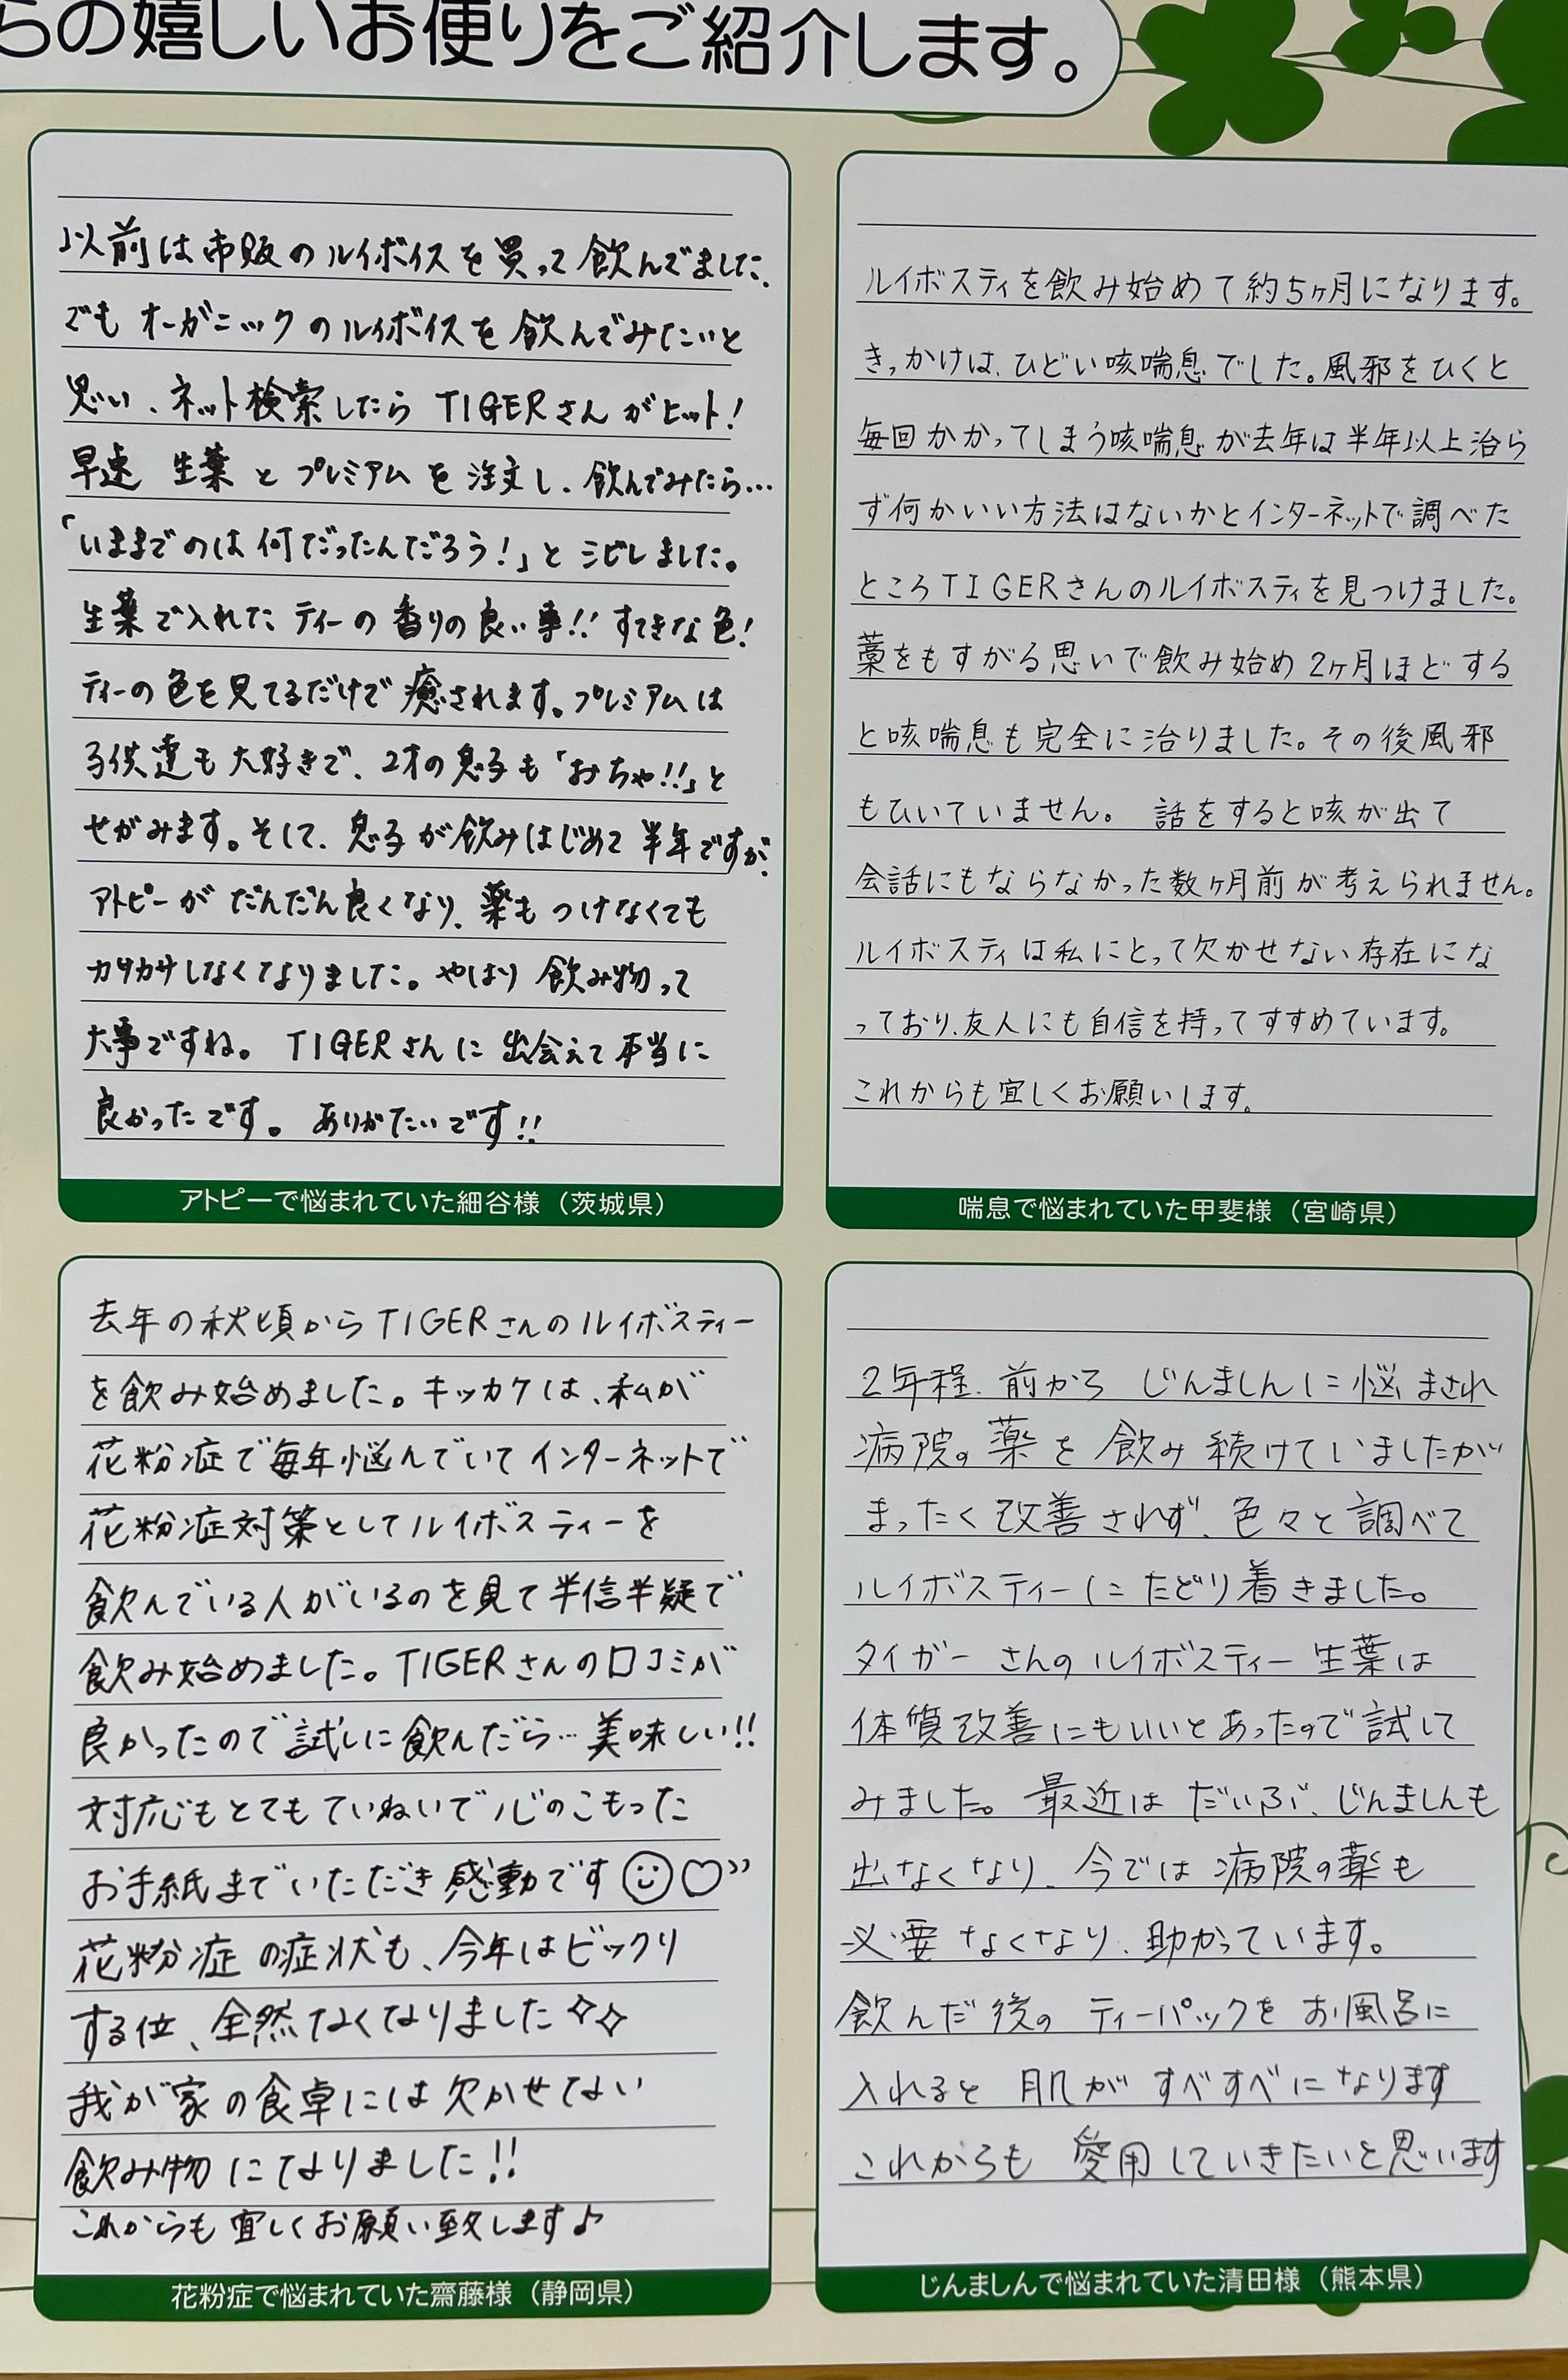 らの嬉しいお便りをご紹介します。
以前は市販のルイボイスを買って飲んでました、
でもオーガニックのルイボイスを飲んでみたいと
思い、ネット検索したらTIGERさんがヒット!
早速 生葉とプレミアムを注文し、飲んでみたら…
「いままでのは何だったんだろう!」とシビしました。
生葉で入れたティーの香りの良い事!! すてきな色!
ティーの色を見てるだけで癒されます。プレミアムは
子供達も大好きで、2才の息子も「おちゃ!!」と
せがみます。そして、息子が飲みはじめて半年ですが、
アトピーがだんだん良くなり、薬もつけなくても
カサカサしなくなりました。やはり飲み物って
大事ですね。 TIGERさんに出会えて本当に
良かったです。 ありがたいです!!
アトピーで悩まれていた細谷様(茨城県)
ルイボスティを飲み始めて約5ヶ月になります。
きっかけは、ひどい咳喘息でした。風邪をひくと
毎回かかってしまう咳喘息が去年は半年以上治ら
ず何かいい方法はないかとインターネットで調べた
ところTIGERさんのルイボスティを見つけました。
藁をもすがる思いで飲み始め2ヶ月ほどする
と咳喘息も完全に治りました。その後風邪
もひいていません。 話をすると咳が出て
会話にもならなかった数ヶ月前が考えられません。
ルイボスティは私にとって欠かせない存在にな
っており、友人にも自信を持ってすすめています。
これからも宜しくお願いします。
喘息で悩まれていた甲斐様(宮崎県)
去年の秋頃からTIGERさんのルイボスティー
を飲み始めました。キッカケは、私が
花粉症で毎年悩んでいてインターネットで
花粉症対策としてルイボスティーを
飲んでいる人がいるのを見て半信半疑で
飲み始めました。TIGERさんの口コミが
良かったので試しに飲んだら…美味しい!!
対応もとてもていねいで心のこもった
お手紙までいただき感動です☺♡
花粉症の症状も、今年はビックリ
する位、全然なくなりました✧✧
我が家の食卓には欠かせない
飲み物になりました!!
これからも宜しくお願い致します♪
花粉症で悩まれていた齋藤様(静岡県)
2年程、前から じんましんに悩まされ
病院の薬を飲み続けていましたが
まったく改善されず、色々と調べて
ルイボスティーにたどり着きました。
タイガーさんのルイボスティー生葉は
体質改善にもいいとあったので試して
みました。最近は だいぶ、じんましんも
出なくなり、今では病院の薬も
必要なくなり、助かっています。
飲んだ後のティーパックをお風呂に
入れると 肌がすべすべになります
これからも 愛用していきたいと思います
じんましんで悩まれていた清田様(熊本県)